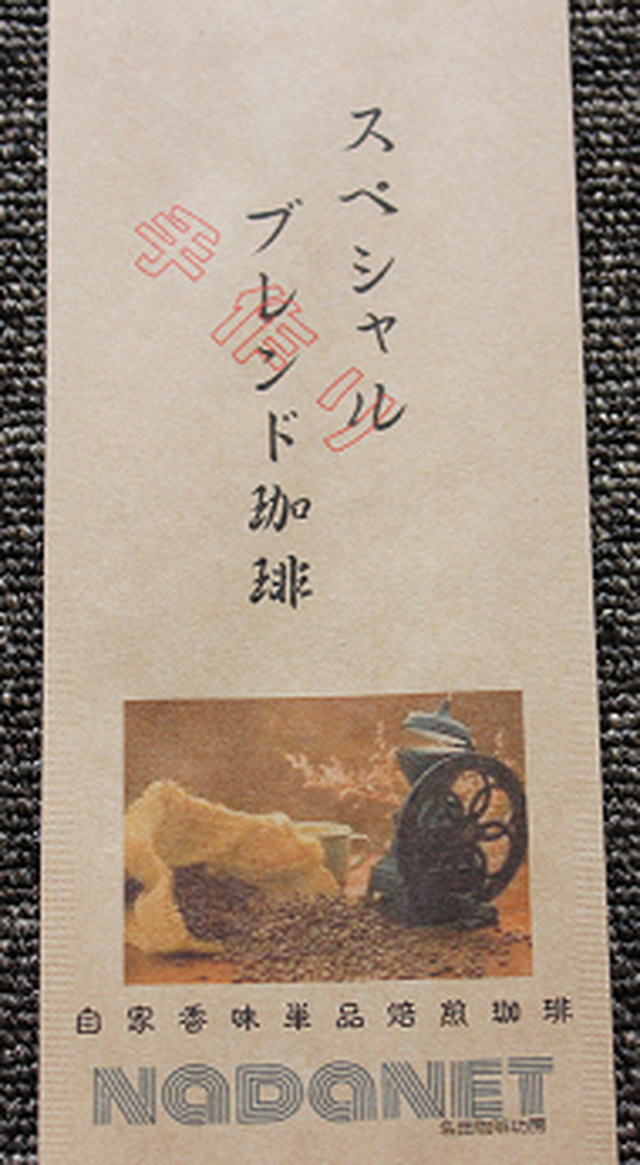 スペシャル
ブレンド珈琲
自家香味単品焙煎珈琲
NADANET